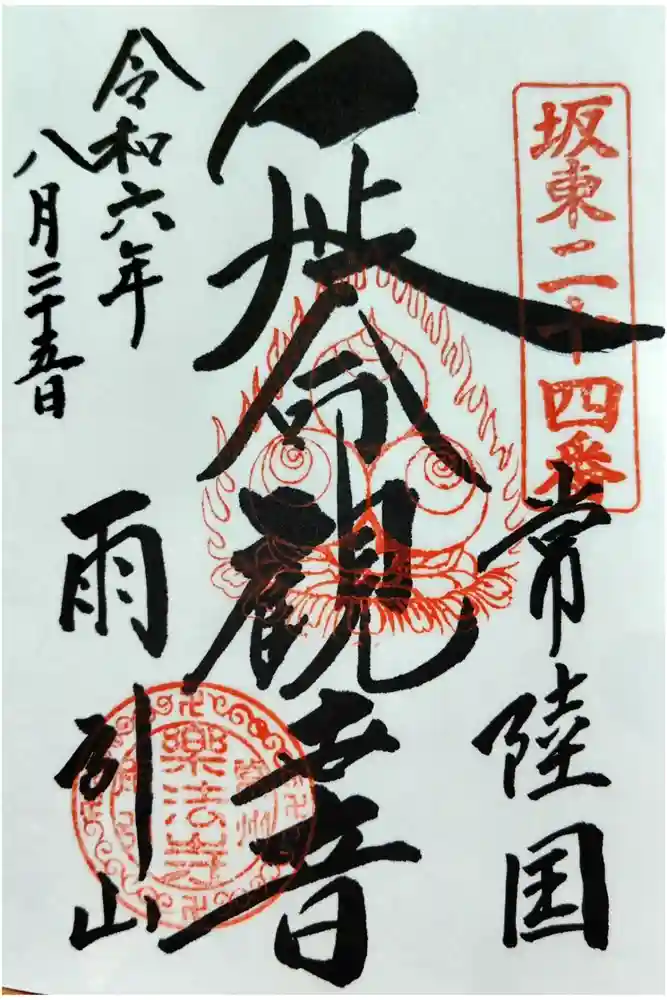 坂東二十四番
常陸国
延命觀音
令和六年
八月二十五日
雨引山
樂法寺